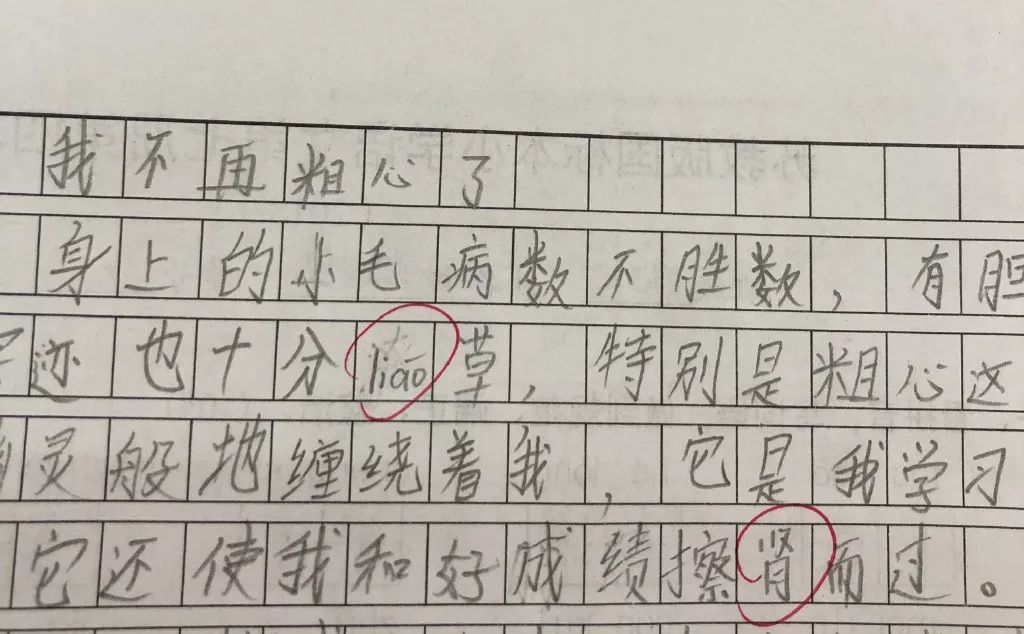 我不再粗心了
身上的小毛病数不胜数，有胆
迹也十分liāo草，特别是粗心这
灵般地缠绕着我，它是我学习
它还使我和好成绩擦肾而过。